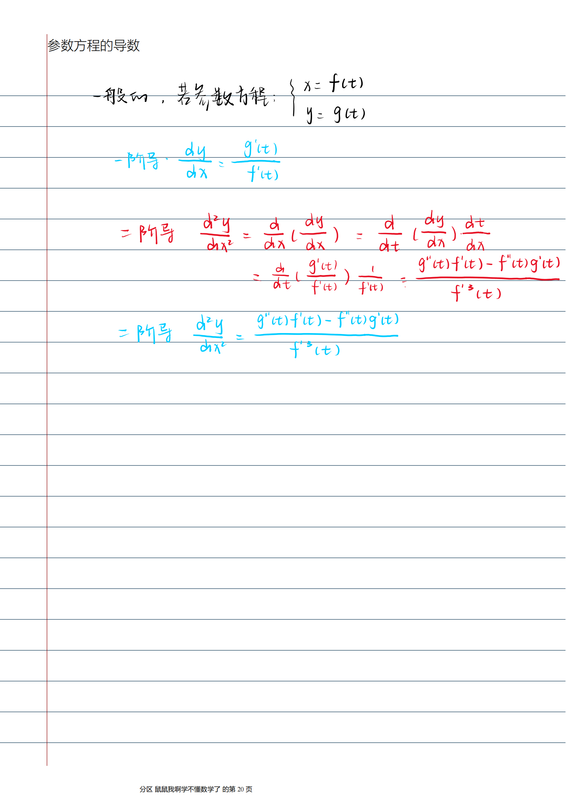 参数方程的导数
一般的，若参数方程：{ x = f(t)
y = g(t)
一阶导. dy/dx = g'(t)/f'(t)
二阶导 d²y/dx² = d/dx (dy/dx) = d/dt (dy/dx) dt/dx
= d/dt (g'(t)/f'(t)) 1/f'(t) = g''(t)f'(t) - f''(t)g'(t) / f'³(t)
二阶导 d²y/dx² = g''(t)f'(t) - f''(t)g'(t) / f'³(t)
分区 鼠鼠我啊学不懂数学了 的第 20 页